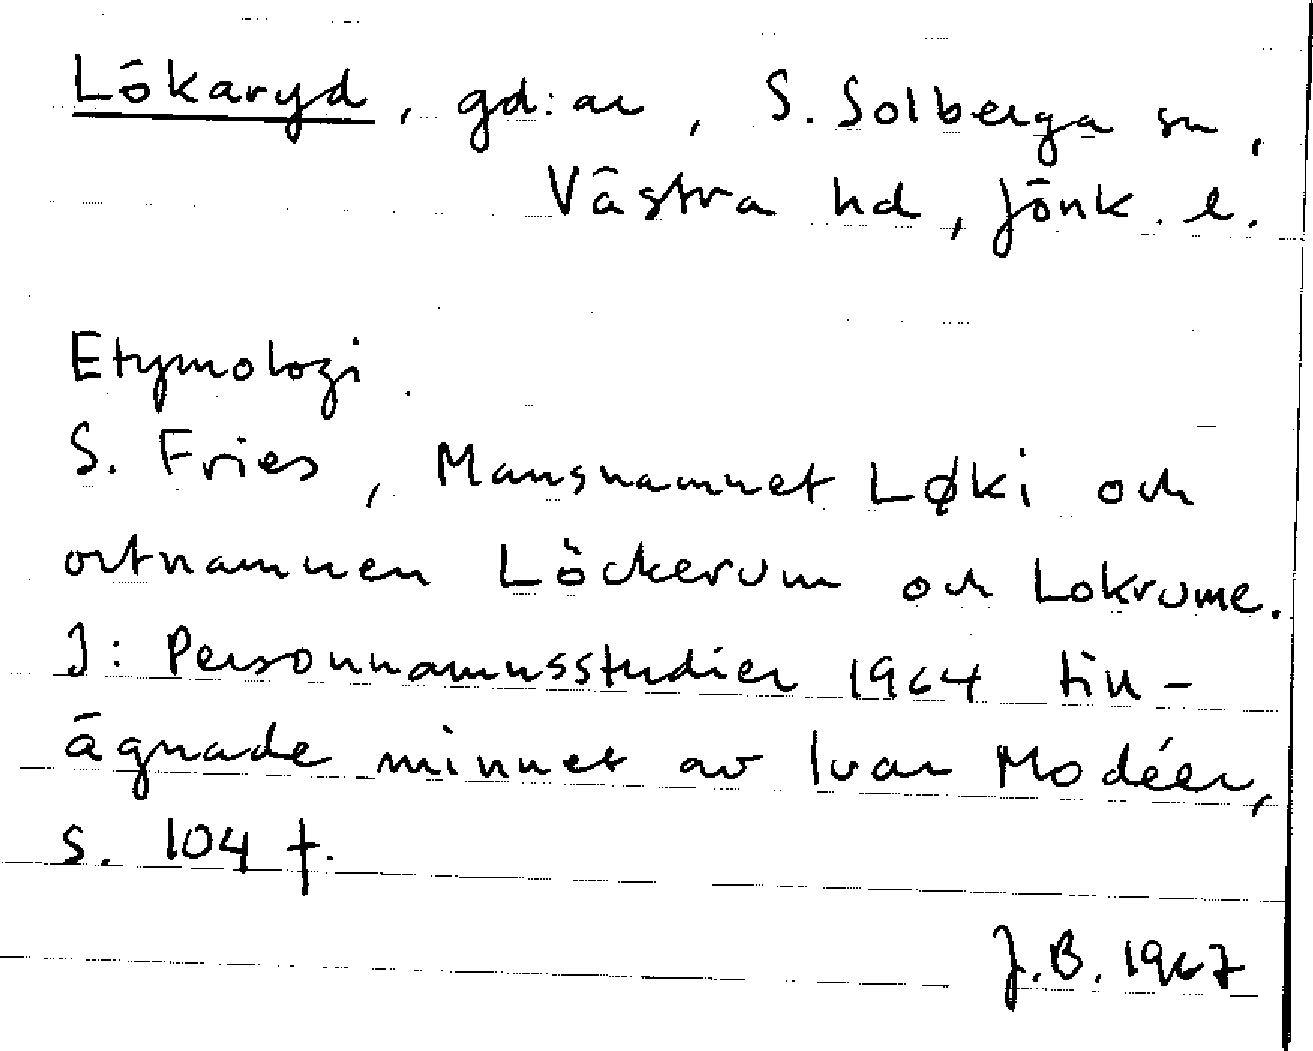 Lökaryd, gd:ar, S. Solberga sn,
Västra hd, Jönk. l.
Etymologi.
S. Fries, Mansnamnet Løki och
ortnamnen Löckerum och Lokrume.
I: Personnamnsstudier 1964 till-
ägnade minnet av Ivar Modéer,
s. 104 f.
J.B. 1967